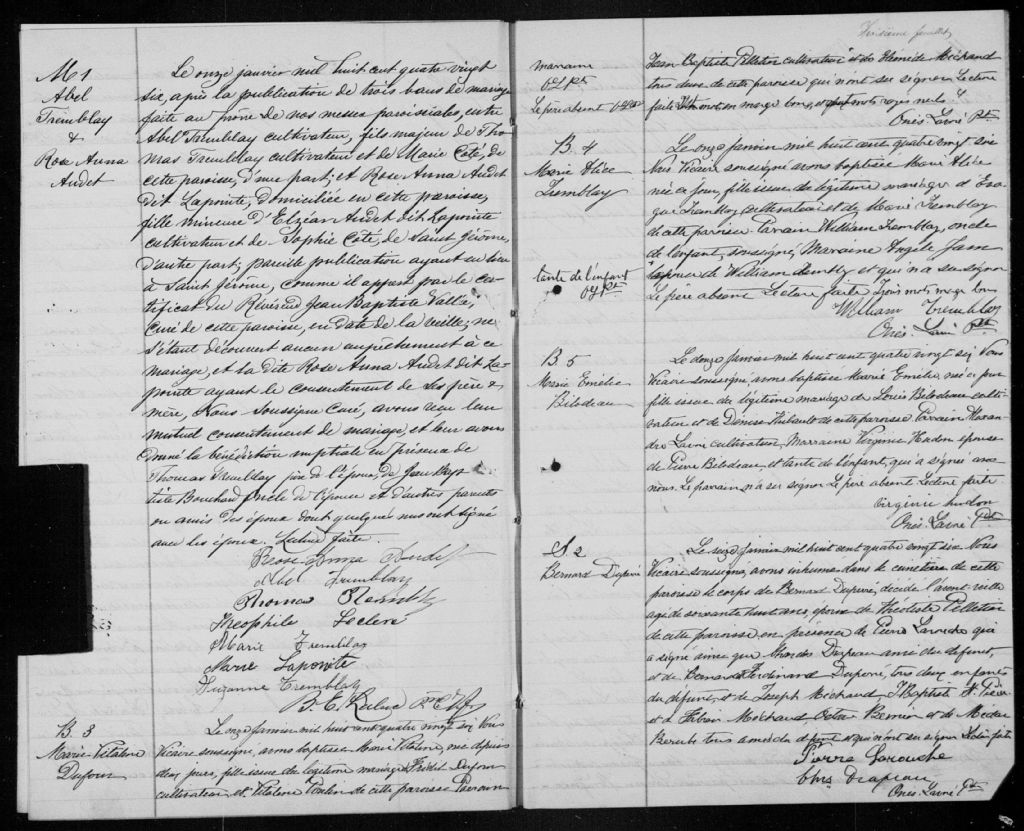 M 1
Abel
Tremblay
&
Rose Anna
Audet
Le onze janvier mil huit cent quatre vingt
six, après la publication de trois bans de mariage
faite au prône de nos messes paroissiales, entre
Abel Tremblay cultivateur, fils majeur de Tho
mas Tremblay cultivateur et de Marie Coté, de
cette paroisse, d'une part; et Rose Anna Audet
dit Lapointe, domiciliée en cette paroisse,
fille mineure d'Elzéar Audet dit Lapointe
cultivateur et de Sophie Coté, de Saint Jérôme,
d'autre part; pareille publication ayant eu lieu
à Saint Jérôme, comme il appert par le cer
tificat du Révérend Jean Baptiste Vallée,
Curé de cette paroisse, en date de la veille; ne
s'étant découvert aucun empêchement à ce
mariage, et la dite Rose Anna Audet dit La
pointe ayant le consentement de ses père &
mère, Nous soussigné Curé, avons reçu leur
mutuel consentement de mariage et leur avons
donné la bénédiction nuptiale en présence de
Thomas Tremblay père de l'époux, de Jean Bap
tiste Bouchard oncle de l'épouse et d'autres parents
ou amis des époux dont quelques uns ont signé
avec les époux. Lecture faite.
Rose Anna Audet
Abel Tremblay
Thomas Tremblay
Théophile Leclerc
Marie Tremblay
Marie Lapointe
Suzanne Tremblay
B. E. Ptre
B. 3
Marie Vitaline
Dufour
Le onze janvier mil huit cent quatre vingt six Nous
Vicaire soussigné, avons baptisée Marie Vitaline, née depuis
deux jours, fille issue du légitime mariage Dufour
cultivateur et Vitaline de cette paroisse Parrain
Troisième feuillet
marraine
O L Ptr
Le père absent O L Ptr
Jean Baptiste Pelletier cultivateur Michaud
tous deux de cette paroisse qui n'ont su signer Lecture
faite mots en marge bons, et mots rayés nuls
Onés. Lavoie Ptr
B. 4
Marie Alice
Tremblay
tante de l'enfant
O L Ptr
Le onze Janvier mil huit cent quatre vingt six
Nous Vicaire soussigné avons baptisée Marie Alice
née ce jour, fille issue du légitime mariage d'
Tremblay cultivateur et de Marie Tremblay
de cette paroisse Parrain William Tremblay, oncle
de l'enfant, soussigné, Marraine Angèle
épouse de William Tremblay et qui n'a su signer
Le père absent Lecture faite Trois mots marge bons
William Tremblay
Onés. Lavoie Ptr
B 5
Marie Emélie
Bilodeau
Le douze Janvier mil huit cent quatre vingt six Nous
Vicaire soussigné avons baptisée Marie Emélie, née ce jour
fille issue du légitime mariage de Louis Bilodeau culti
vateur et de Denise Thibault de cette paroisse Parrain
Lavoie cultivateur, Marraine Virginie Hudon épouse
de Pierre Bilodeau, et tante de l'enfant, qui a signé avec
nous. Le parrain n'a su signer Le père absent Lecture faite
Virginie hudon
Onés. Lavoie Ptr
S 2
Bernard Duperé
Le seize Janvier mil huit cent quatre vingt six Nous
Vicaire soussigné, avons inhumé dans le cimetière de cette
paroisse le corps de Bernard Duperé, décédé l'avant veille
agé de soixante huit ans, époux de Théotiste Pelletier
de cette paroisse, en présence de Pierre Larouche qui
a signé ainsi que Drapeau ami du défunt,
et de Bernard Ferdinand Duperé, tous deux enfants
du défunt, et de Joseph Michaud J Baptiste St Pierre
et d' Michaud Octave Bernier et de Médar
Berubé tous amis du défunt et qui n'ont su signer Lecture faite
Pierre Larouche
Chs Drapeau
Onés. Lavoie Ptr